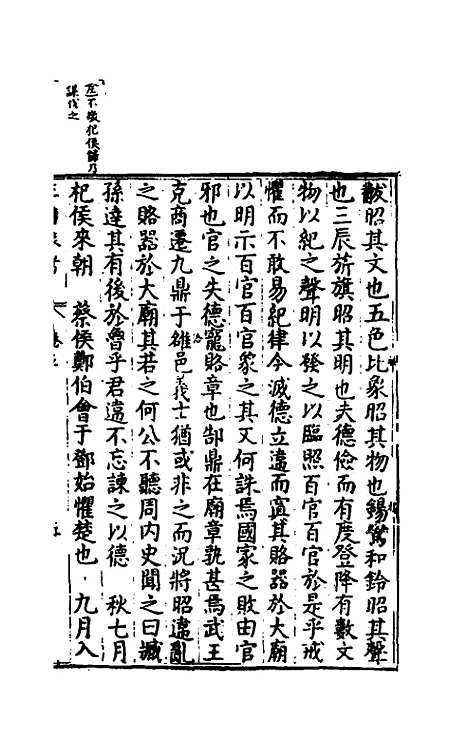 黻昭其文也五色比象昭其物也鍚鸞和鈴昭其聲
也三辰旂旗昭其明也夫德儉而有度登降有數文
物以紀之聲明以發之以臨照百官百官於是乎戒
懼而不敢易紀律今滅德立違而寘其賂器於大廟
以明示百官百官象之其又何誅焉國家之敗由官
邪也官之失德寵賂章也郜鼎在廟章孰甚焉武王
克商遷九鼎于雒邑義士猶或非之而況將昭違亂
之賂器於大廟其若之何公不聽周内史聞之曰臧
孫達其有後於魯乎君違不忘諫之以德 秋七月
杞侯來朝 蔡侯鄭伯會于鄧始懼楚也 九月入
不敬杞侯歸乃
謀伐之